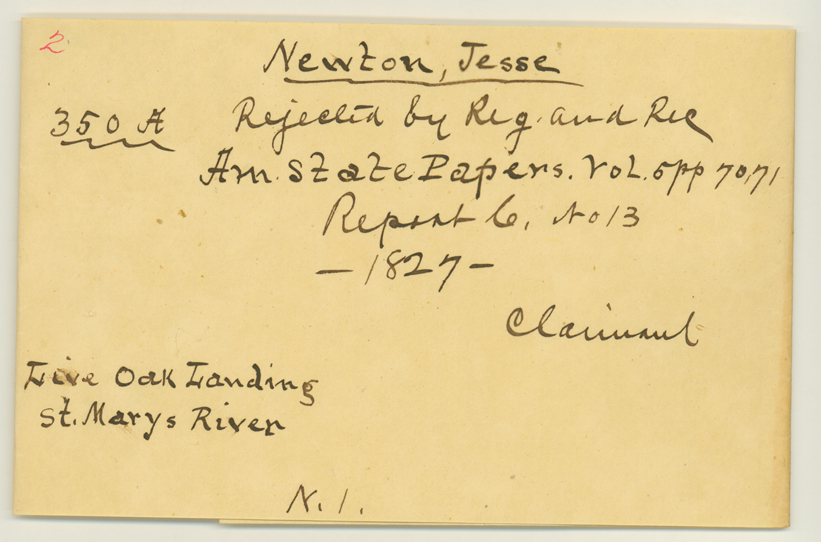 2
Newton, Jesse
350 A Rejected by Reg. and Rec
Am. State Papers. Vol. 5 pp 70,71
Report 6, No 13
— 1827 —
Claimant
Live Oak Landing
St. Marys River
N. 1.